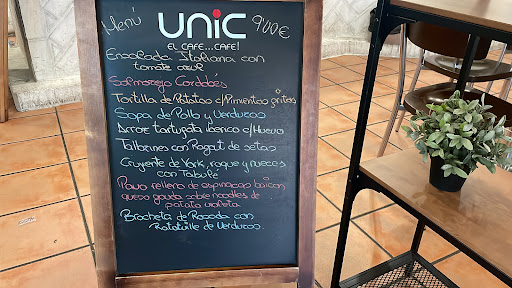 Menú UNiC 9'00€
EL CAFE...CAFE!
Ensalada Italiana con
tomate azul
Salmorejo Cordobés
Tortilla de Patatas c/Pimientos fritos
Sopa de Pollo y Verduras
Arroz tartufata iberico c/Huevo
Tallarines con Ragut de setas
Crujiente de York, roque y nueces
con Tabulé
Pavo relleno de espinacas baicon
queso gouda sobre noodles de
patata violeta
Brocheta de Rosada con
Ratatuille de Verduras.